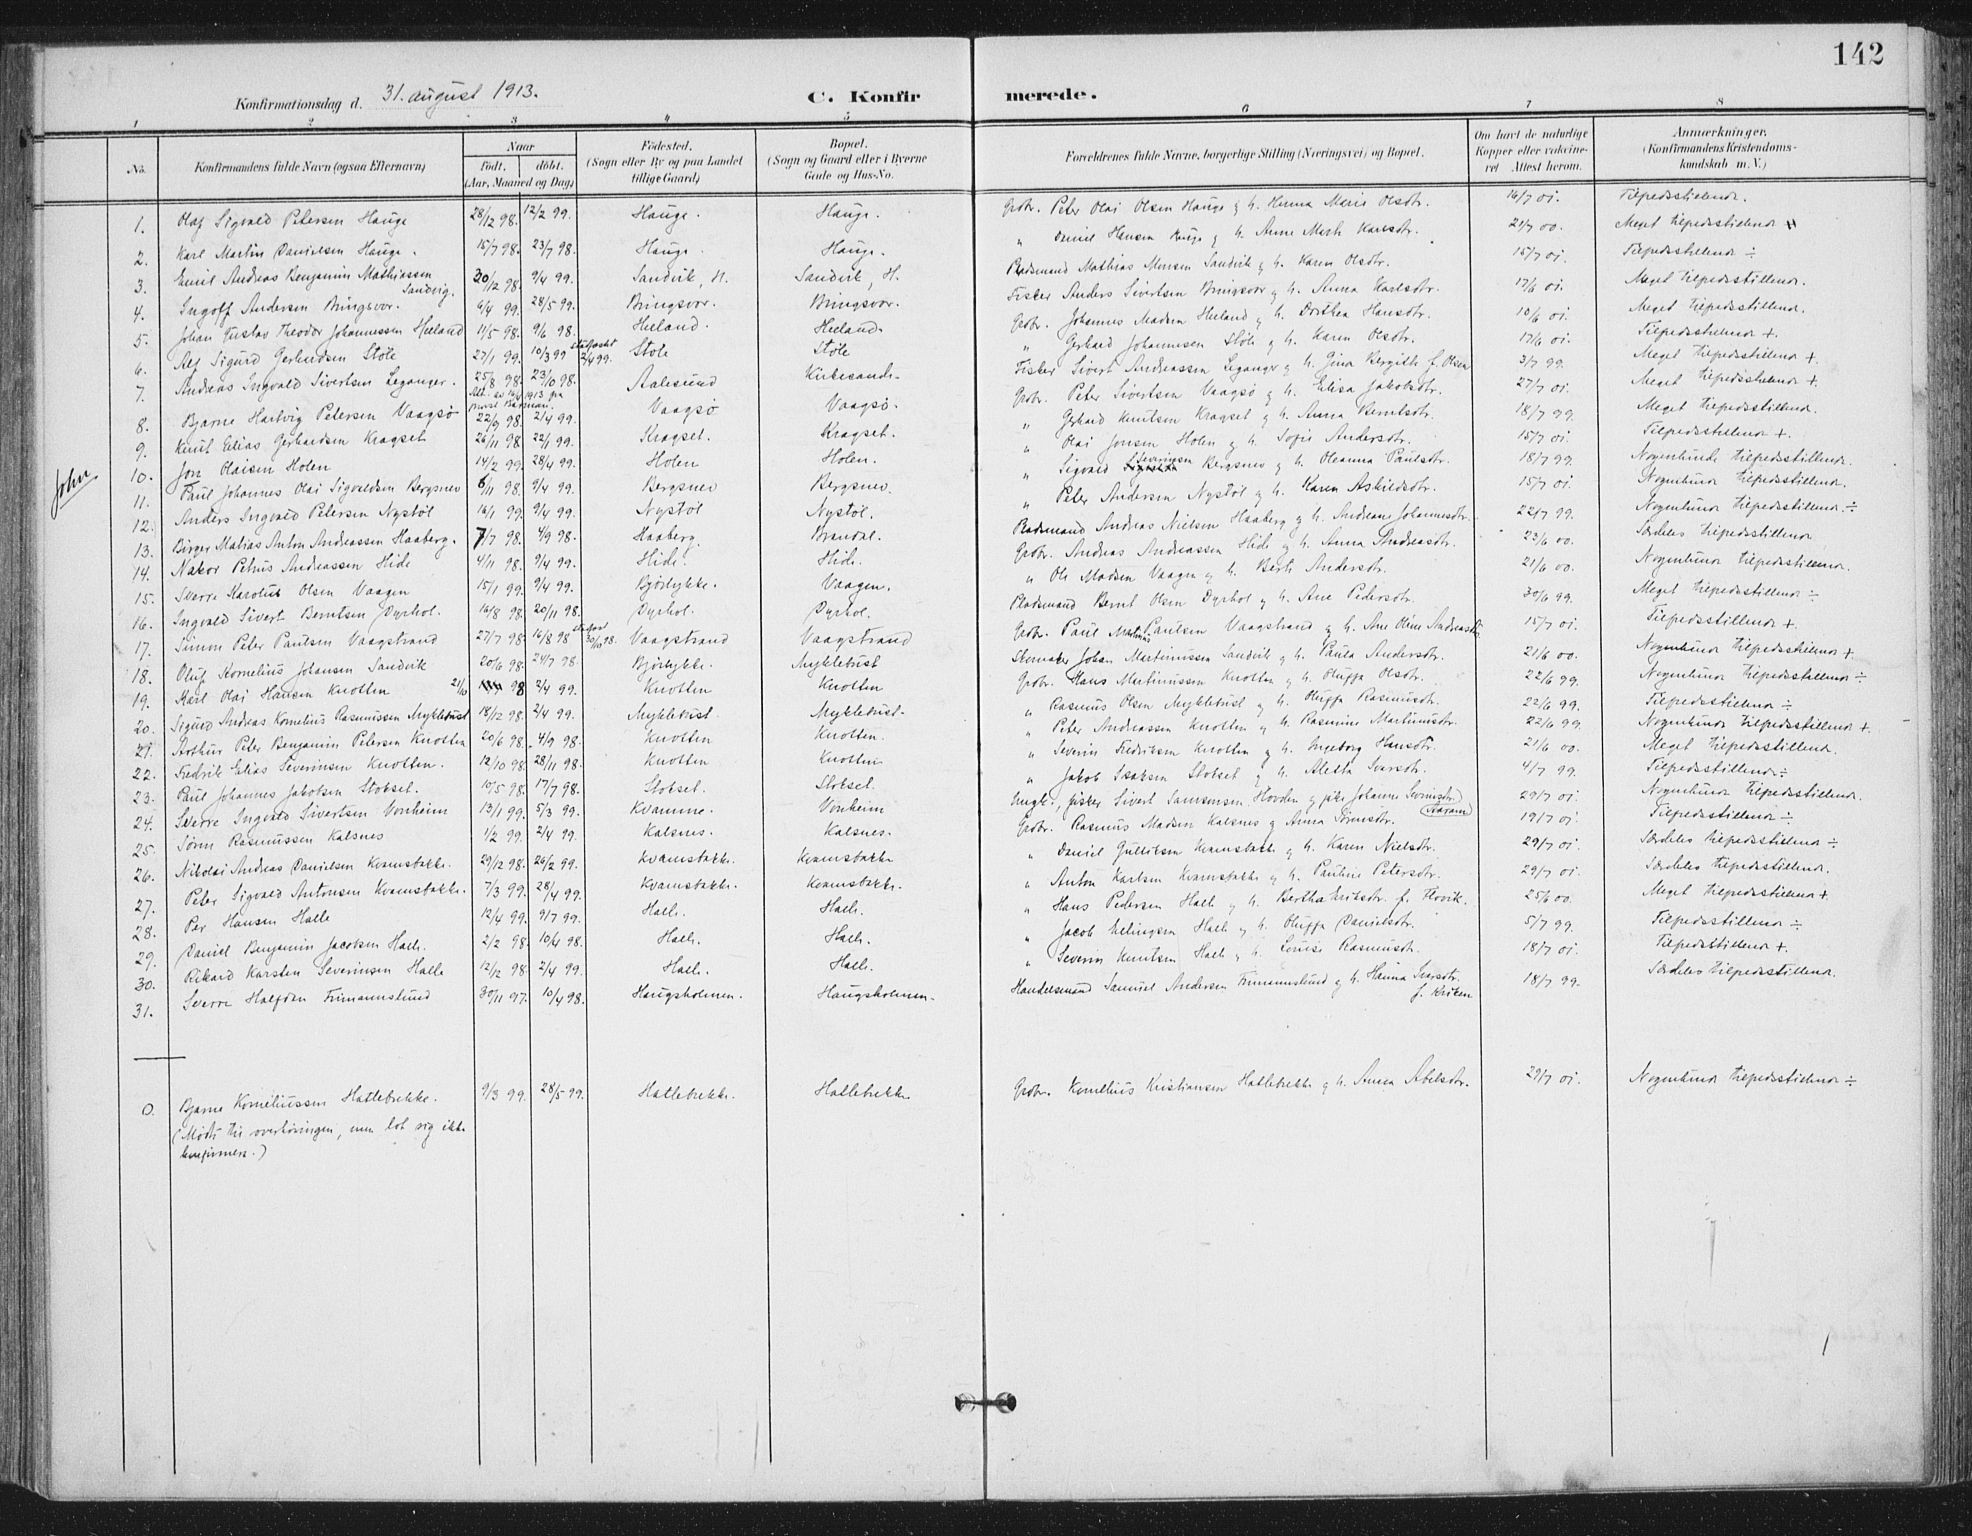 142
Konfirmationsdag d. 31. august 1913. C. Konfirmerede.
1 2 3 4 5 6 7 8
No. Konfirmandens fulde Navn (ogsaa Efternavn) Naar födt. döbt. (Aar, Maaned og Dag) Födested. (Sogn eller By og paa Landet tillige Gaard) Bopæl. (Sogn og Gaard eller i Byerne Gade og Hus-No. Forældrenes fulde Navne, borgerlige Stilling (Næringsvei) og Bopæl. Om havt de naturlige Kopper eller vakcineret Attest herom. Anmærkninger. (Konfirmandens Kristendomskundskab m. V.)
1. Olaf Sigvald Petersen Hauge 28/12 98. 12/2 99. Hauge. Hauge. Grdbr. Peter Olai Olsen Hauge g h. Hanna Marie Olsdtr. 16/7 01. Tilfredsstillende.
2. Karl Martin Danielsen Hauge. 15/7 98. 23/7 98. Hauge. Hauge. " Daniel Hansen Hauge g h. Anne Marte Karlsdtr. 21/7 00. Meget tilfredsstillende
3. Emil Andreas Benjamin Mathiassen Sandvig. 30/12 98. 9/4 99. Sandvik, H. Sandvik, H. Pladsmand Mathias Monsen Sandvik g h. Karen Olsdtr. 15/7 01. Tilfredsstillende ÷
4. Ingolf Andersen Bringsvor. 6/4 99. 28/5 99. Bringsvor. Bringsvor. Fisker Anders Sivertsen Bringsvor g h. Anna Karlsdtr. 17/6 01. Meget tilfredsstillende.
5. Johan Gustav Theodor Johannessen Heeland 11/5 98. 9/6 98. Heeland. Heeland. Grdbr. Johannes Madsen Heeland g h. Dorthea Hansdtr. 10/6 01. Meget tilfredsstillende.
6. Alf Sigurd Gerhardsen Støle 27/1 99. 10/3 99 stadfæstet 2/4 99. Støle Støle " Gerhard Johannesen Støle g h. Karen Olsdtr. 17/6 01. Tilfredsstillende +.
7. Andreas Ingvald Sivertsen Leganger. 25/8 98. 23/10 98. Aalesund Kirkesande. Fisker Sivert Andreassen Leganger g h. Gina Bergitte f. Olsen 3/7 99. Meget tilfredsstillende +.
8. Bjarne Hartvig Petersen Vaagsø 22/9 98. 2/4 99. Vaagsø Vaagsø. Grdbr. Peter Sivertsen Vaagsø g h. Elisa Jakobsdtr. 27/7 01. Meget tilfredsstillende +.
9. Knut Elias Gerhardsen Kragset 26/11 98. 22/1 99. Kragset. Kragset. " Gerhard Knutsen Kragset g h. Anna Berntsdtr. 18/7 99. Meget tilfredsstillende.
John
10. Jon Olaisen Holen 14/2 99. 28/4 99. Holen Holen. " Olai Jonsen Holen g h. Sofie Andersdtr. 15/7 01. Tilfredsstillende +.
11. Paul Johannes Olai Sigvaldsen Bergsnev 6/11 98. 9/4 99. Bergsnev Bergsnev. " Sigvald Severinsen Bergsnev g h. Oleanna Paulsdtr. 18/7 99. Nogenlunde tilfredsstillende.
12. Anders Ingvald Petersen Nystøl 16/1 99. 9/4 99. Nystøl Nystøl. " Peter Andersen Nystøl g h. Karen Askildsdtr. 15/7 01. Nogenlunde tilfredsstillende.
13. Birger Matias Anton Andreassen Haaberg. 7/7 98. 4/9 98. Haaberg Brandal. Pladsmand Andreas Nielsen Haaberg g h. Andreane Johannesdtr. 22/7 99. Nogenlunde tilfredsstillende ÷
14. Nakor Petrus Andreassen Hide 4/11 98. 9/4 99. Hide. Hide. Grdbr. Andreas Andreassen Hide g h. Anna Andreasdtr. 23/6 00. Særdeles tilfredsstillende
15. Sverre Karolus Olsen Vaagen 15/1 99. 9/4 99. Bjørlykke. Vaagen. " Ole Madsen Vaagen g h. Berte Andersdtr. 21/6 00. Nogenlunde tilfredsstillende.
16. Ingvald Sivert Berntsen Dyrhol. 16/8 98. 20/11 98. Dyrhol. Dyrhol. Pladsmand Bernt Olsen Dyrhol g h. Ane Pedersdtr. 30/6 99. Meget tilfredsstillende ÷
17. Simon Peter Paulsen Vaagstrand 27/7 98. 16/8 98 30/10 98. Vaagstrand Vaagstrand Grdbr. Paul Martinus Paulsen Vaagstrand g h. Ane Oline Andreasdtr. 15/7 01. Tilfredsstillende +.
18. Oluf Kornelius Johansen Sandvik 20/6 98. 24/7 98. Bjørlykke. Myklebust Skomaker Johan Martinussen Sandvik g h. Paula Andersdtr. 21/6 00. Nogenlunde tilfredsstillende +.
19. Karl Olai Hansen Knotten 21/10 98 2/4 99. Knotten Knotten Grdbr. Hans Martinussen Knotten g h. Oluffa Olsdtr. 22/6 99. Nogenlunde tilfredsstillende ÷
20. Sigurd Andreas Kornelius Rasmussen Myklebust 18/12 98. 2/4 99. Myklebust. Myklebust. " Rasmus Olsen Myklebust g h. Oluffa Rasmusdtr. 22/6 99. Tilfredsstillende ÷
21. Arthur Peter Benjamin Petersen Knotten 20/6 98. 4/9 98. Knotten Knotten. " Peter Andreassen Knotten g h. Rasmine Martinusdtr. 22/6 99. Nogenlunde tilfredsstillende +
22. Fredrik Elias Severinsen Knotten. 12/10 98. 28/11 98. Knotten Knotten " Severin Fredriksen Knotten g h. Ingeborg Hansdtr. 21/6 00. Meget tilfredsstillende.
23. Paul Johannes Jakobsen Stokset. 10/5 98. 17/7 98. Stokset. Stokset. " Jakob Isaksen Stokset g h. Aletta Ivarsdtr. 4/7 99. Tilfredsstillende ÷
24. Sverre Ingvald Sivertsen Vonheim 13/1 99. 5/3 99. Kvamme. Vonheim Ungk., fisker Sivert Samsonsen Hovden g pike Johanne 29/7 01. Nogenlunde tilfredsstillende.
25. Sørin Rasmussen Kalsnes 1/2 99. 2/4 99. Kalsnes. Kalsnes. Grdbr. Rasmus Madsen Kalsnes g Anna Sørinsdtr. 19/7 01. Tilfredsstillende ÷
26. Nikolai Andreas Danielsen Kvamsbakke. 29/12 98. 26/2 99. Kvamsbakke. Kvamsbakke " Daniel Gulliksen Kvamsbakke g h. Karen Nielsdtr. 29/7 01. Særdeles tilfredsstillende ÷
27. Peter Sigvald Antonsen Kvamsbakke. 7/3 99. 28/4 99. Kvamsbakke. Kvamsbakke. " Anton Karlsen Kvamsbakke g h. Pauline Petersdtr. 29/7 01. Særdeles tilfredsstillende.
28. Per Hansen Halle 12/4 99. 9/7 99. Halle. Halle. " Hans Pedersen Halle g h. Bertha Eriksdtr. f. Flovik. 25/6 00. Meget tilfredsstillende +
29. Daniel Benjamin Jacobsen Halle. 2/2 98. 10/4 98. Halle. Halle. " Jacob Elingsen Halle g h. Oluffa Danielsdtr. 5/7 99. Tilfredsstillende ÷
30. Rikard Karsten Severinsen Halle 12/12 98. 2/4 99. Halle. Halle. " Severin Knutsen Halle g h. Louise Rasmusdtr. 18/7 01. Tilfredsstillende +.
31. Sverre Halfdan Frimannslund 30/11 97. 10/4 98. Haugsholmen. Haugsholmen. Handelsmand Samuel Andersen Frimannslund g h. Hanna Ivarsdtr. f. Kriken 18/7 99. Særdeles tilfredsstillende.
0. Bjarne Korneliussen Hatlebrekke. 9/3 99. 28/5 99. Hatlebrekke. Hatlebrekke Grdbr. Kornelius Kristiansen Hatlebrekke g h. Anna Abelsdtr. 29/7 01. Nogenlunde tilfredsstillende ÷
(Mødte til overhøringen, men lot sig ikke
konfirmere.)